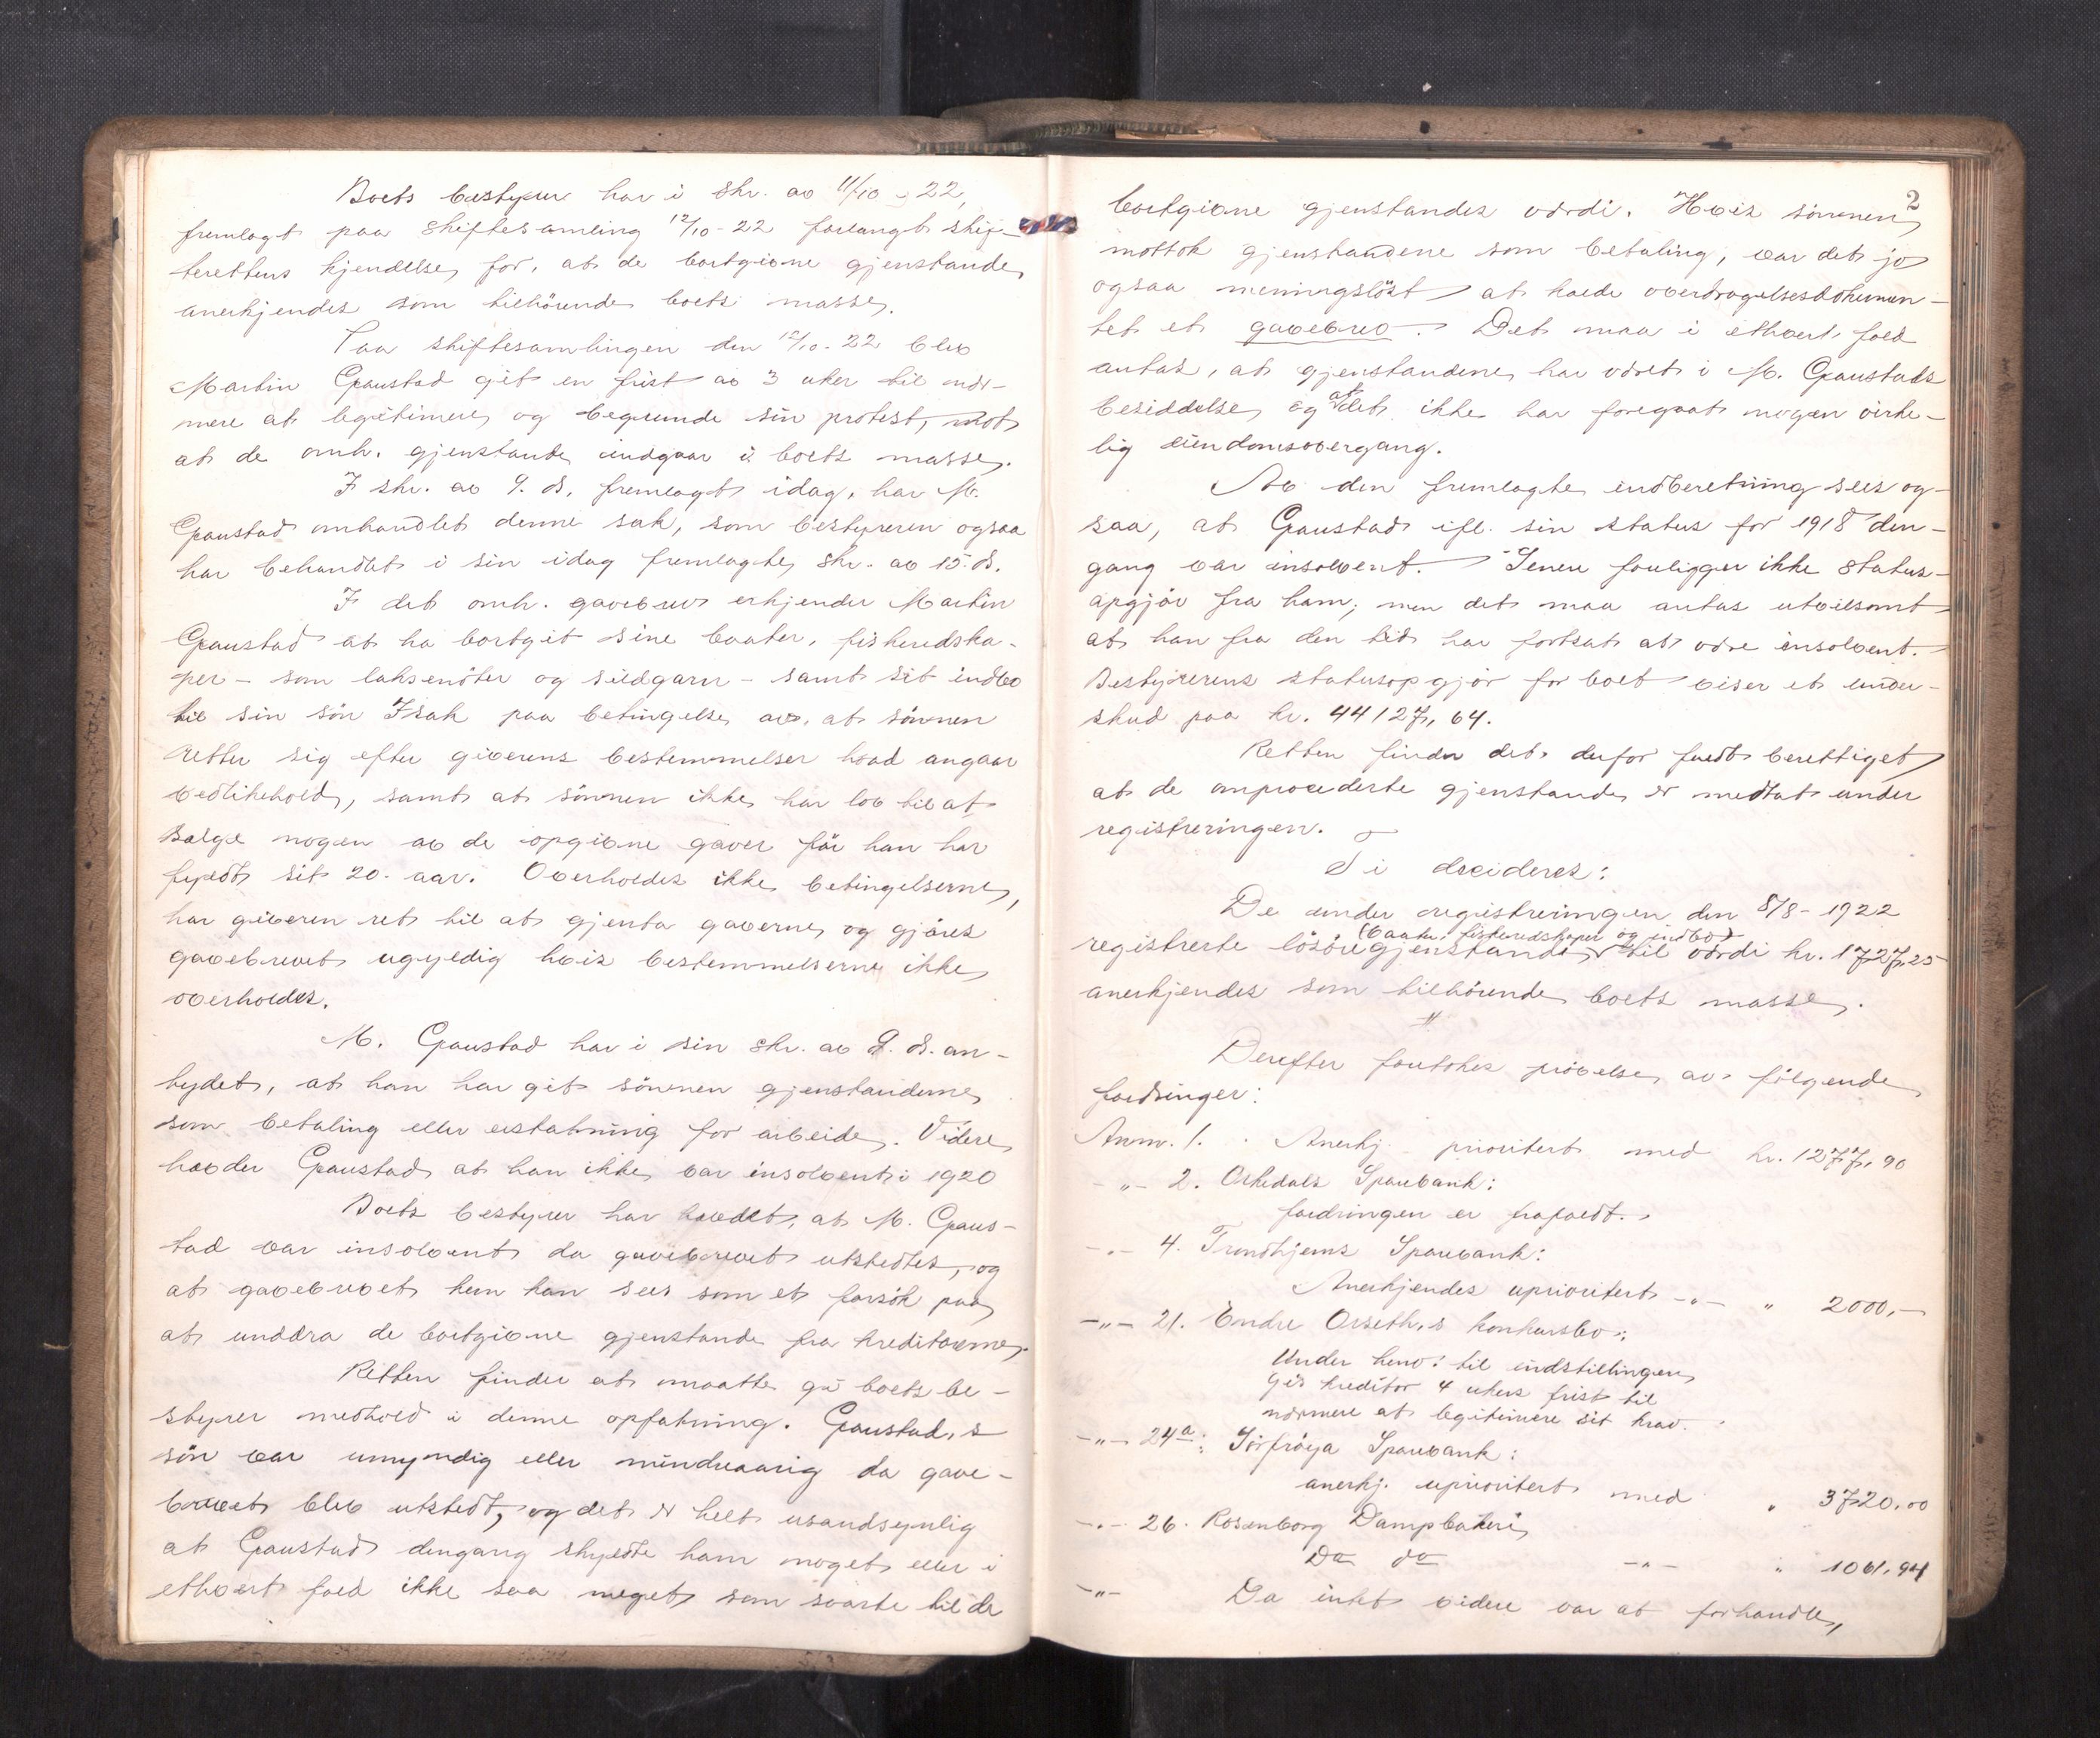 Boets bestyrer har i skr. av 11/10 - 22,
fremlagt paa skiftesamling 12/10 - 22 forlangt skif-
terettens kjendelse for, at de bortgivne gjenstande
anerkjendes som tilhörende boets masse.
Paa skiftesamlingen den 12/10 - 22 blev
Martin Gaustad git en frist av 3 uker til nær-
mere at legitimere og begrunde sin protest, mot
at de omh. gjenstande indgaar i boets masse.
I skr. av 9. ds. fremlagt idag, har M.
Gaustad omhandlet denne sak, som bestyreren ogsaa
har behandlet i sin idag fremlagte skr. av 15. ds.
I det omh. gavebrev erkjender Martin
Gaustad at ha bortgit sine baater, fiskeredska-
per - som laksenöter og sildgarn - samt sit indbo
til sin sön Isak paa betingelse av, at sönnen
retter sig efter giverens bestemmelser hvad angaar
vedlikehold, samt at sönnen ikke har lov til at
sælge nogen av de opgivne gaver för han har
fyldt sit 20. aar. Overholdes ikke betingelserne,
har giveren ret til at gjenta gaverne og gjöres
gavebrevet ugyldig hvis bestemmelserne ikke
overholdes.
M. Gaustad har i sin skr. av 9. ds. an-
tydet, at han har git sönnen gjenstandene
som betaling eller erstatning for arbeide. Videre
hævder Gaustad at han ikke var insolvent i 1920
Boets bestyrer har hævdet, at M. Gaus-
tad var insolvent da gavebrevet utstedtes, og
at gavebrevet kun kan sees som et forsök paa
at unddra de bortgivne gjenstande fra kreditorerne.
Retten finder at maatte gi boets be-
styrer medhold i denne opfatning. Gaustad,s
sön var umyndig eller mindreaarig da gave-
brevet blev utstedt, og det er helt usandsynlig
at Gaustad dengang skyldte ham noget eller i
ethvert fald ikke saa meget som svarte til de
2
bortgivne gjenstandes værdi. Hvis sönnen
mottok gjenstandene som betaling, var det jo
ogsaa meningslöst at kalde overdragelsesdokumen-
tet et gavebrev. Det maa i ethvert fald
antas, at gjenstandene har været i M. Gaustads
besiddelse og at det ikke har foregaat nogen virke-
lig eiendomsovergang.
Av den fremlagte indberetning sees og-
saa, at Gaustad ifl. sin status for 1918 den-
gang var insolvent. Senere foreligger ikke status-
opgjör fra ham; men det maa antas utvilsomt
at han fra den tid har fortsat at være insolvent.
Bestyrerens statusopgjör for boet viser et under-
skud paa kr. 44127,64.
Retten finder det derfor fuldt berettiget
at de omprocederte gjenstande er medtat under
registreringen.
Ti decideres:
De under registreringen den 8/8 - 1922
(baater, fiskeredskaper og indbo)
registrerte lösöregjenstande til værdi kr. 1727,25
anerkjendes som tilhörende boets masse.
Derefter foretokes prövelse av fölgende
fordringer:
Anm. 1. Anerkj. prioritert med kr. 1277,90
-"- 2. Orkedals Sparebank:
fordringen er frafaldt.
-"- 4. Trondhjems Sparebank:
Anerkjendes uprioritert -"- " 2000,-
-"- 21. Endre Orseth,s konkursbo:
Under henv. til indstillingen
gis kreditor 4 ukers frist til
nærmere at legitimere sit krav.
-"- 24a: Sörfröya Sparebank:
anerkj. uprioritert med " 3720,00
-"- 26. Rosenborg Dampbakeri,
Do do -"- " 1061,94
-"- Da intet videre var at forhandle,